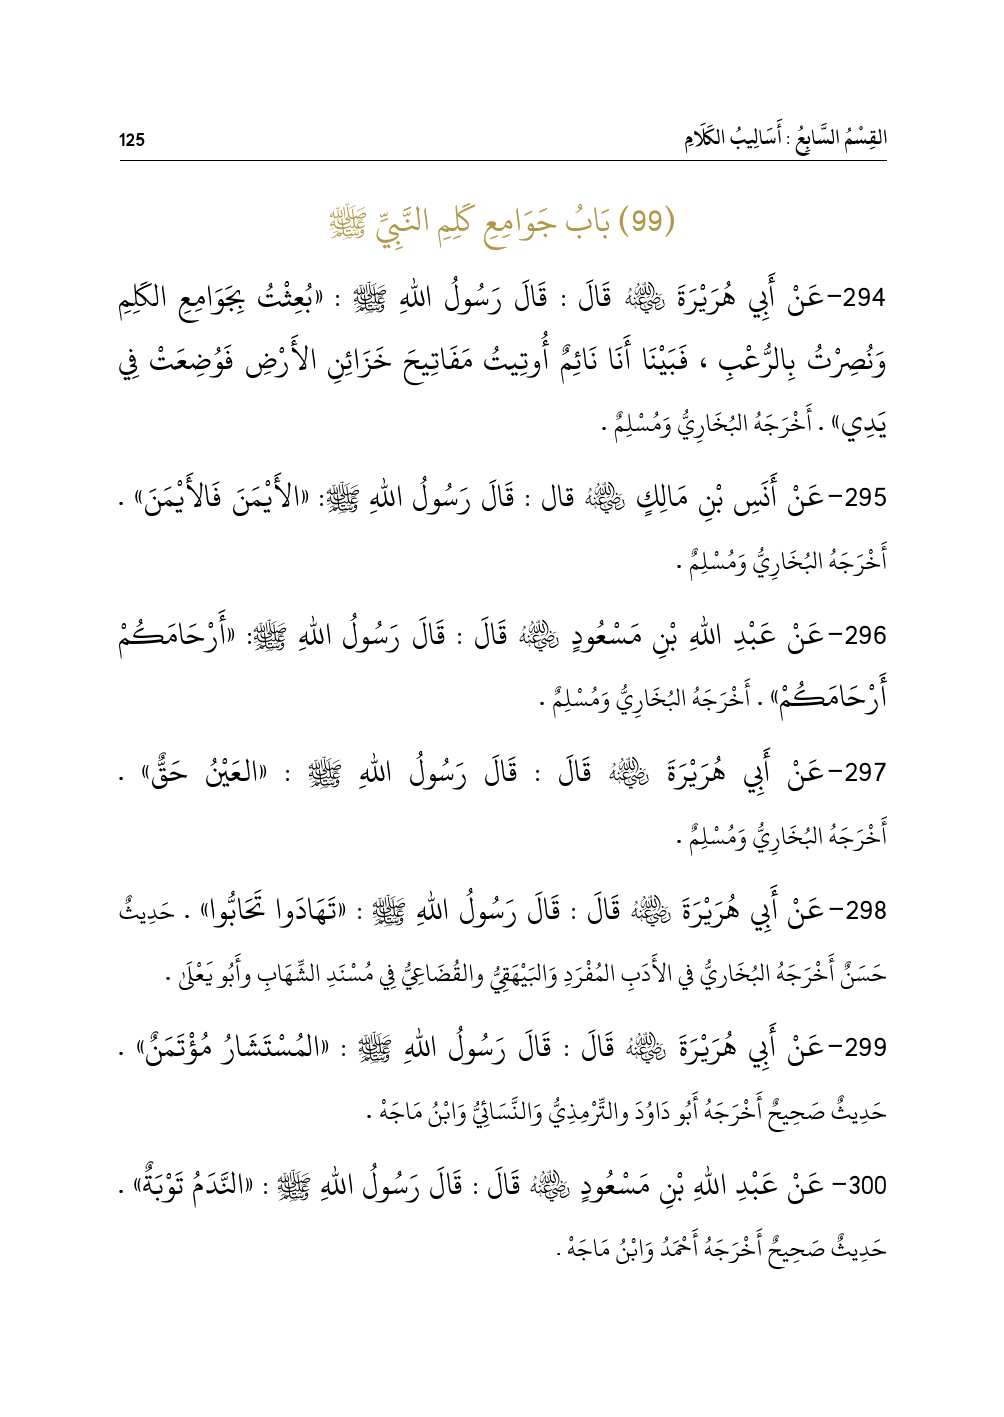 القِسْمُ السَّابِعُ : أَسَالِيبُ الكَلَامِ 125
(99) بَابُ جَوَامِعِ كَلِمِ النَّبِيِّ ﷺ
294-عَنْ أَبِي هُرَيْرَةَ رضي الله عنه قَالَ : قَالَ رَسُولُ اللهِ ﷺ : «بُعِثْتُ بِجَوَامِعِ الكَلِمِ
وَنُصِرْتُ بِالرُّعْبِ ، فَبَيْنَا أَنَا نَائِمٌ أُوتِيتُ مَفَاتِيحَ خَزَائِنِ الأَرْضِ فَوُضِعَتْ فِي
يَدِي» . أَخْرَجَهُ البُخَارِيُّ وَمُسْلِمٌ .
295-عَنْ أَنَسِ بْنِ مَالِكٍ رضي الله عنه قال : قَالَ رَسُولُ اللهِ ﷺ: «الأَيْمَنَ فَالأَيْمَنَ» .
أَخْرَجَهُ البُخَارِيُّ وَمُسْلِمٌ .
296-عَنْ عَبْدِ اللهِ بْنِ مَسْعُودٍ رضي الله عنه قَالَ : قَالَ رَسُولُ اللهِ ﷺ: «أَرْحَامَكُمْ
أَرْحَامَكُمْ» . أَخْرَجَهُ البُخَارِيُّ وَمُسْلِمٌ .
297-عَنْ أَبِي هُرَيْرَةَ رضي الله عنه قَالَ : قَالَ رَسُولُ اللهِ ﷺ : «العَيْنُ حَقٌّ» .
أَخْرَجَهُ البُخَارِيُّ وَمُسْلِمٌ .
298-عَنْ أَبِي هُرَيْرَةَ رضي الله عنه قَالَ : قَالَ رَسُولُ اللهِ ﷺ : «تَهَادَوا تَحَابُّوا» . حَدِيثٌ
حَسَنٌ أَخْرَجَهُ البُخَاريُّ في الأَدَبِ المُفْرَدِ وَالبَيْهَقِيُّ والقُضَاعِيُّ فِي مُسْنَدِ الشِّهَابِ وأَبُو يَعْلَىٰ .
299-عَنْ أَبِي هُرَيْرَةَ رضي الله عنه قَالَ : قَالَ رَسُولُ اللهِ ﷺ : «المُسْتَشَارُ مُؤْتَمَنٌ» .
حَدِيثٌ صَحِيحٌ أَخْرَجَهُ أَبُو دَاوُدَ والتِّرْمِذِيُّ وَالنَّسَائِيُّ وَابْنُ مَاجَهْ .
300- عَنْ عَبْدِ اللهِ بْنِ مَسْعُودٍ رضي الله عنه قَالَ : قَالَ رَسُولُ اللهِ ﷺ : «النَّدَمُ تَوْبَةٌ» .
حَدِيثٌ صَحِيحٌ أَخْرَجَهُ أَحْمَدُ وَابْنُ مَاجَهْ .